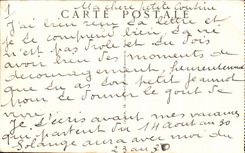 Ma chère petite Cousine
CARTE POSTALE
J'ai bien reçu ta lettre et
je te comprend bien. La vie
n'est pas drôle et tu dois
avoir eu des moments de
découragement, heureusement
que tu as ton petit Jeannot
pour te donner le goût de
vivre
Je t'écris avant mes vacances
qui partent du 1 Août au 30
Solange aura avec moi du
23 au 30